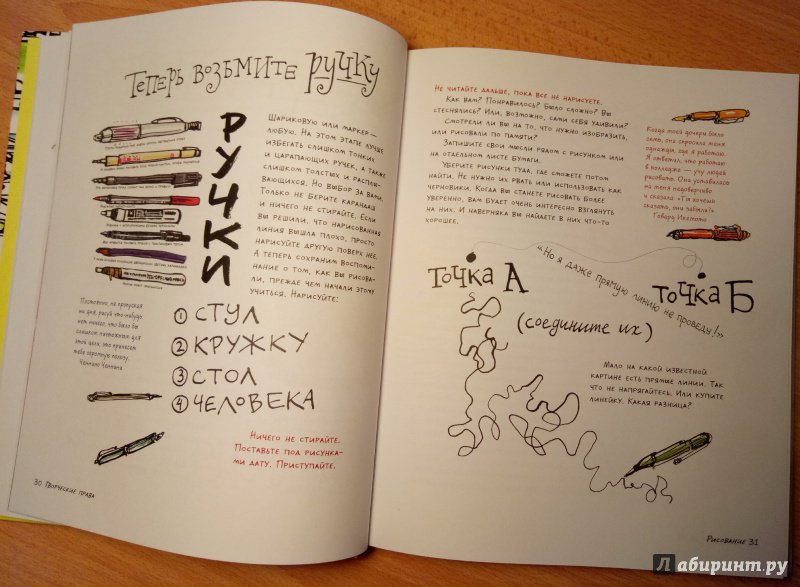 Теперь возьмите ручку
РУЧКИ
Шариковую или маркер —
любую. На этом этапе лучше
избегать слишком тонких
и царапающих ручек, а также
слишком толстых и расплы-
вающихся. Но выбор за вами.
Только не берите карандаш
и ничего не стирайте. Если
вы решили, что нарисованная
линия вышла плохо, просто
нарисуйте другую поверх нее.
А теперь сохраним воспоми-
нание о том, как вы рисова-
ли, прежде чем начали этому
учиться. Нарисуйте:
Постоянно, не пропуская
ни дня, рисуй что-нибудь:
нет ничего, что было бы
слишком ничтожным для
этой цели, это принесет
тебе огромную пользу.
Ченнино Ченнини
1 СТУЛ
2 КРУЖКУ
3 СТОЛ
4 ЧЕЛОВЕКА
Ничего не стирайте.
Поставьте под рисунка-
ми дату. Приступайте.
30 Творческие права
Не читайте дальше, пока все не нарисуете.
Как вам? Понравилось? Было сложно? Вы
стеснялись? Или, возможно, сами себя удивили?
Смотрели ли вы на то, что нужно изобразить,
или рисовали по памяти?
Запишите свои мысли рядом с рисунком или
на отдельном листе бумаги.
Уберите рисунки туда, где сможете потом
найти. Не нужно их рвать или использовать как
черновики. Когда вы станете рисовать более
уверенно, вам будет очень интересно взглянуть
на них. И наверняка вы найдете в них что-то
хорошее.
Когда моей дочери было
семь, она спросила меня
однажды, где я работаю.
Я ответил, что работаю
в колледже — учу людей
рисовать. Она уставилась
на меня недоверчиво
и сказала: «Ты хочешь
сказать, они забыли?»
Говард Икемото
«Но я даже прямую линию не проведу!»
Точка А
точка Б
(соедините их)
Мало на какой известной
картине есть прямые линии. Так
что не напрягайтесь. Или купите
линейку. Какая разница?
Рисование 31
Лабиринт.ру